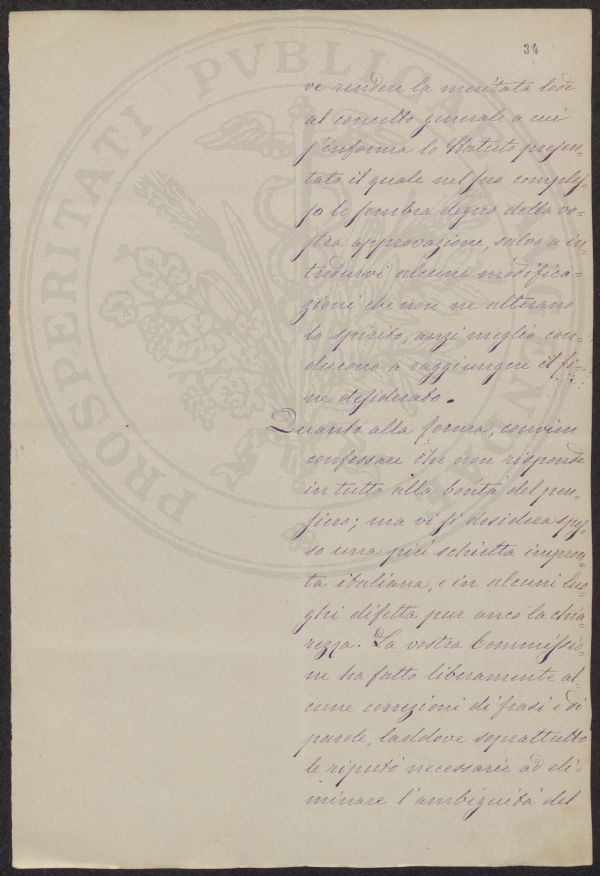 PROSPERITATI PVBLICAE
34
ve rendere la meritata lode
al concetto generale a cui
s'informa lo Statuto presen-
tato il quale nel suo comples-
so le sembra degno della vo-
stra approvazione, salvo a in-
trodurvi alcune modifica-
zioni che non ne alterano
lo spirito, anzi meglio con-
ducono a raggiungere il fi-
ne desiderato.
Quanto alla forma, conviene
confessare che non risponde
in tutto alla bontà del pen-
siero; ma vi si desidera spes-
so una più schietta impron-
ta italiana, e in alcuni luo-
ghi difetta pur anco la chia-
rezza. La vostra Commissio-
ne ha fatto liberamente al-
cune correzioni di frasi e di
parole, laddove soprattutto
le riputò necessarie ad eli-
minare l'ambiguità del